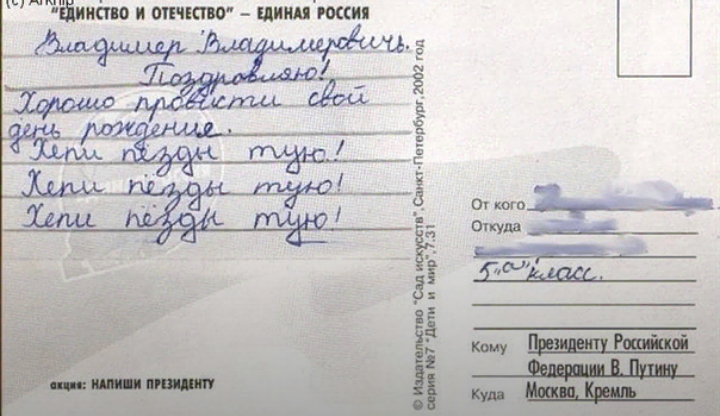 (c) Arkhip
"ЕДИНСТВО И ОТЕЧЕСТВО" – ЕДИНАЯ РОССИЯ
Владимер Владимеровичь.
Поздровляю!
Хорошо провисти свой
день рождение.
Хепи пёзды тую!
Хепи пёзды тую!
Хепи пёзды тую!
акция: НАПИШИ ПРЕЗИДЕНТУ
© Издательство "Сад искусств", Санкт-Петербург, 2002 год
серия №7 "Дети и мир", 7.31
От кого
Откуда
5 "а" класс.
Кому Президенту Российской
Федерации В. Путину
Куда Москва, Кремль